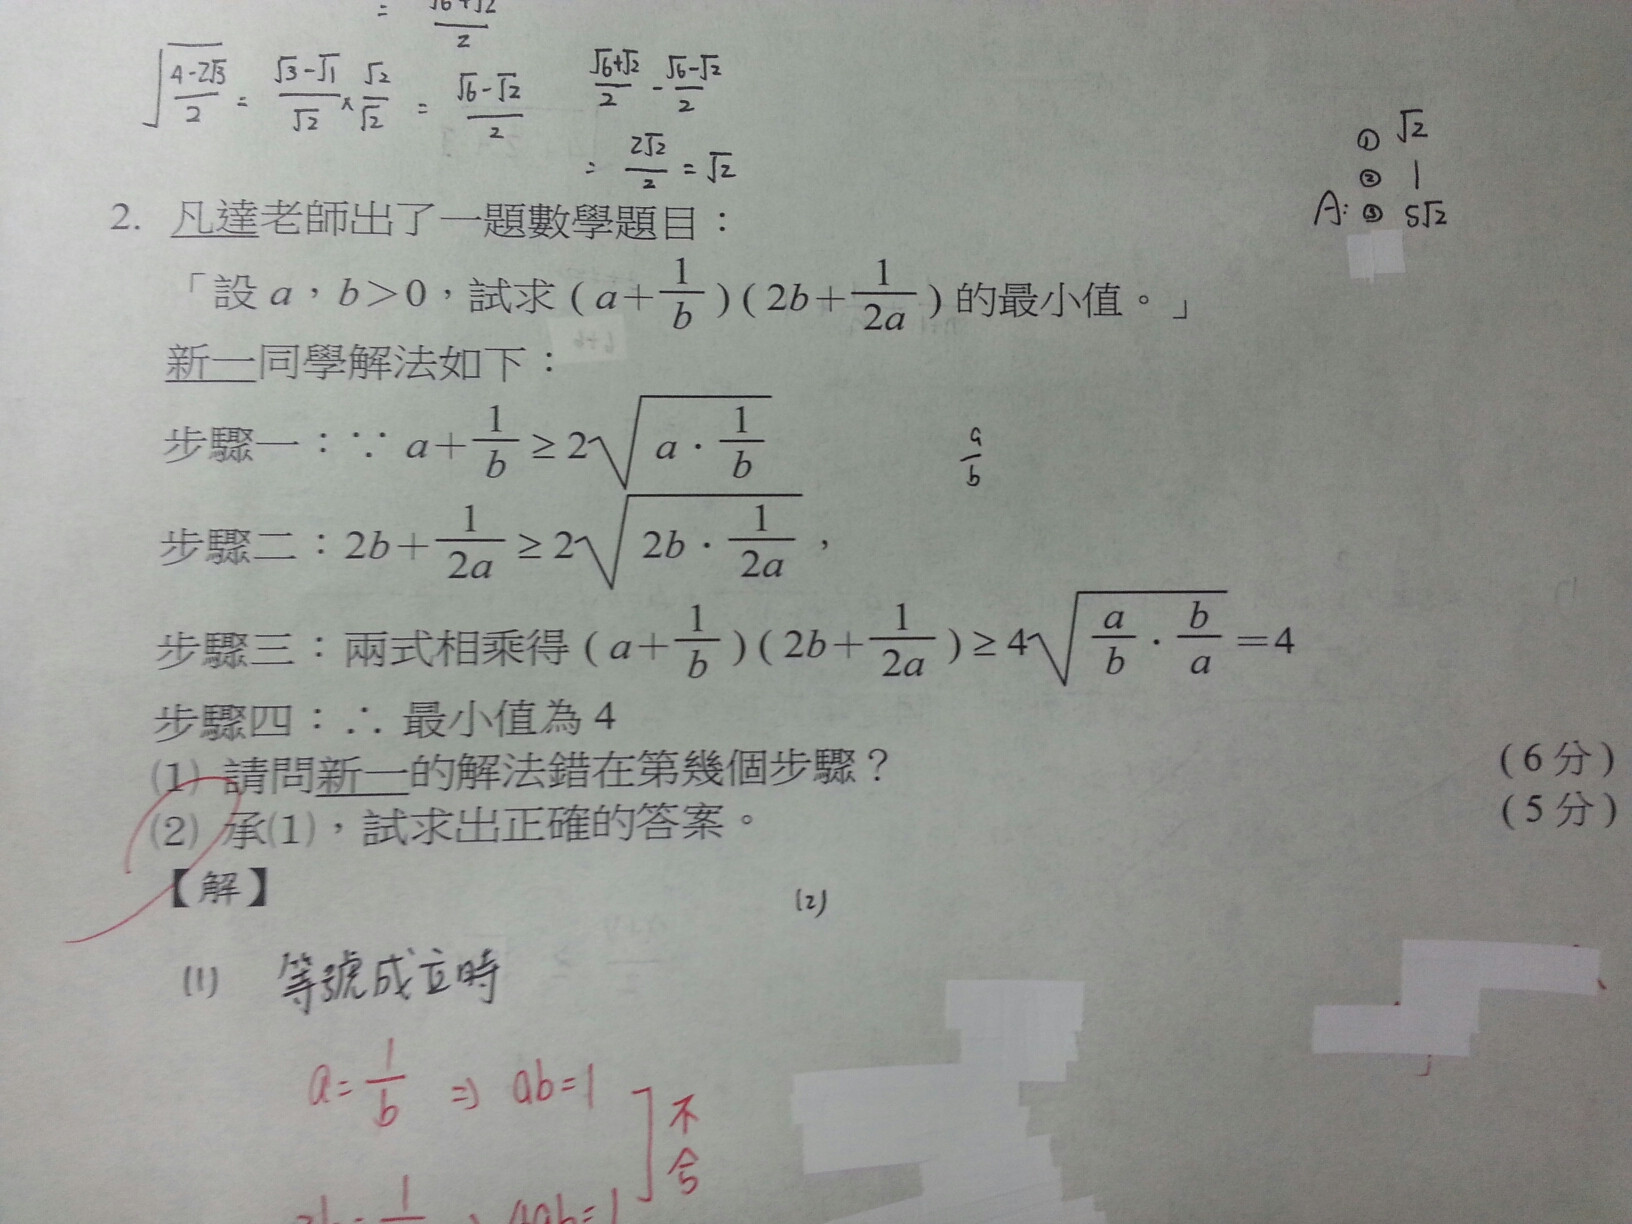 = √6+√2/2
√(4-2√3/2) = √3-√1/√2 × √2/√2 = √6-√2/2
√6+√2/2 - √6-√2/2
= 2√2/2 = √2
① √2
② 1
A: ③ 5√2
2. 凡達老師出了一題數學題目：
「設 a，b>0，試求 (a+1/b)(2b+1/2a) 的最小值。」
新一同學解法如下：
步驟一：∵ a+1/b ≥ 2√(a·1/b)
a/b
步驟二：2b+1/2a ≥ 2√(2b·1/2a)，
步驟三：兩式相乘得 (a+1/b)(2b+1/2a) ≥ 4√(a/b·b/a) =4
步驟四：∴ 最小值為 4
(1) 請問新一的解法錯在第幾個步驟？ (6 分)
(2) 承(1)，試求出正確的答案。 (5 分)
【解】
(2)
(1) 等號成立時
a=1/b ⇒ ab=1
不合
2b=1/ ⇒ 4ab=1